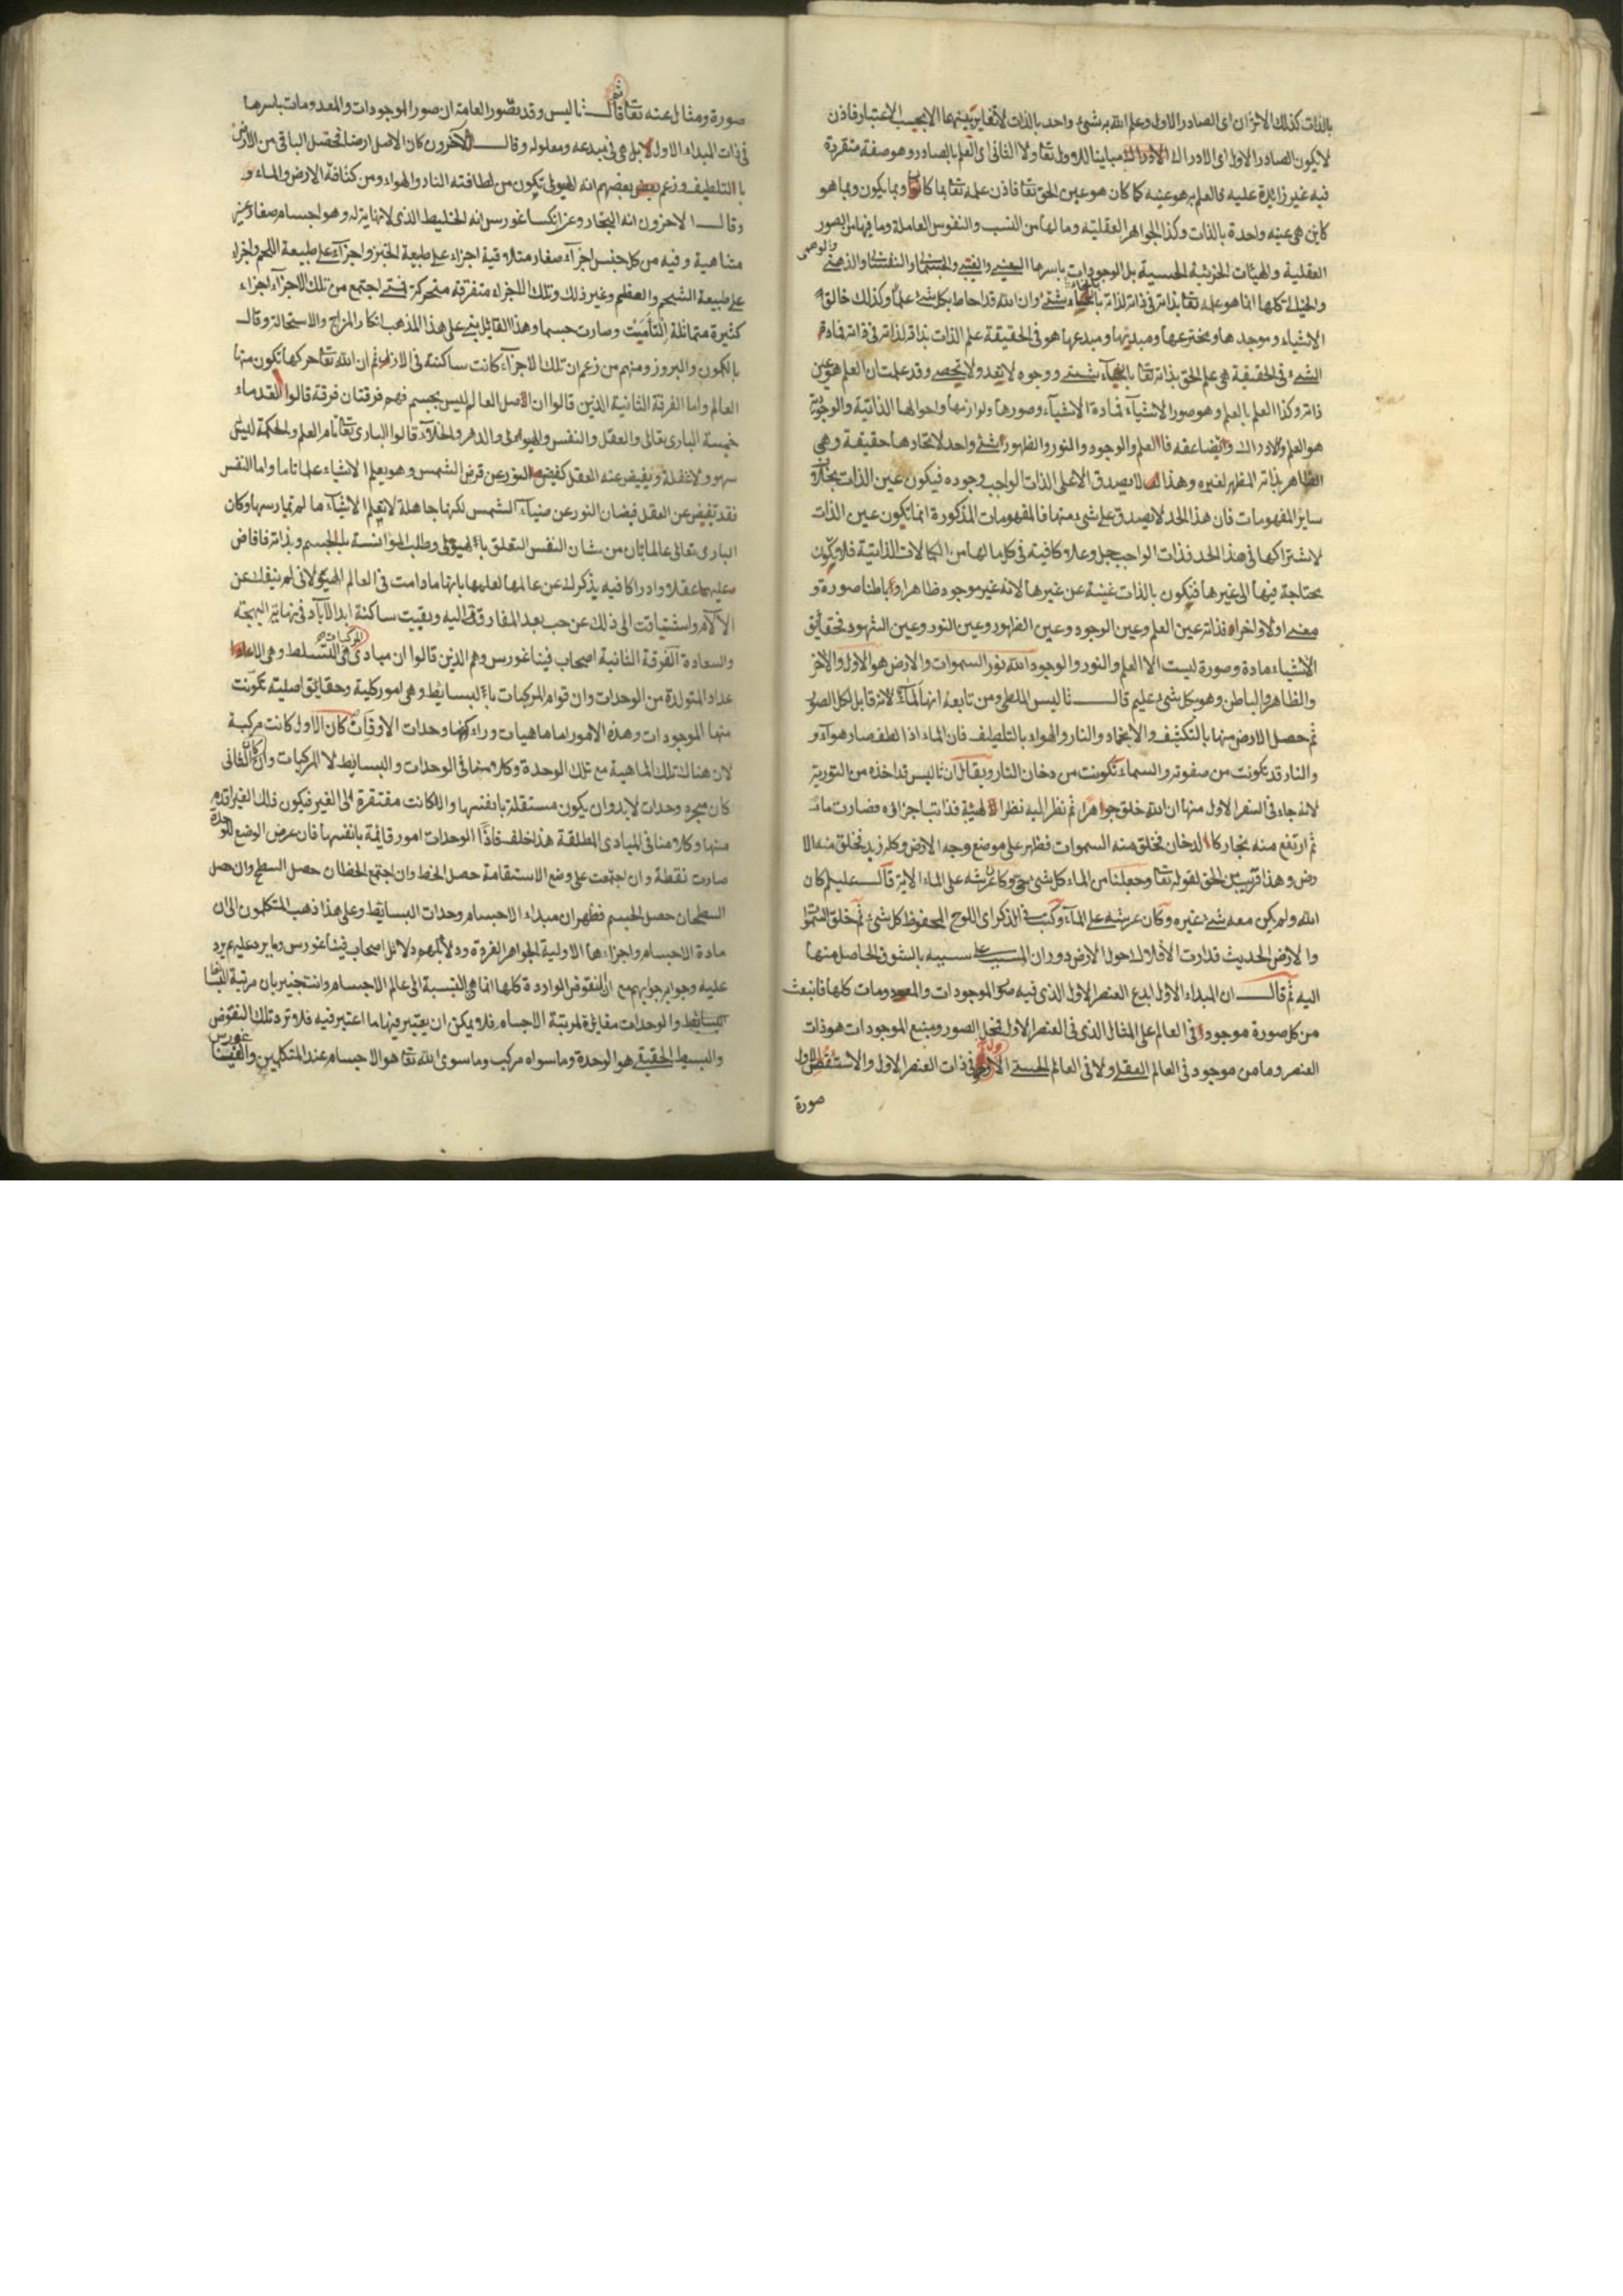 بالذات كذلك الاتزان اى الصادر الاول وعلم الله به شئ واحد بالذات لا تغاير بينهما الا بحسب الاعتبار فاذن
لا يكون الصادر الاول اى الادراك مباينا للاول تعا ولا الثانى اى العلم بالصادر وهو صفة متقررة
فيه غير زائدة عليه فالعلم به هو عينه كما كان هو عين الحق تعا فاذن علمه تعا بما كان وبما يكون وبما هو
كاين هى عينه واحدة بالذات وكذا الجواهر العقلية وما لها من النسب والنفوس العاملة وما فيها من الصور
العقلية والهيئات الجزئية الحسية بل الموجودات باسرها العينى والذهنى
والوهمى
والخيالى كلها انما هو علمه تعا بذاته فى ذاته لذاته بانحاء شتى وان الله قد احاط بكل شئ علما وكذلك خالق
الاشياء وموجدها ومخترعها ومبديها ومبدعها هو فى الحقيقة علم الذات بذاته لذاته فى ذاته فمادة
الشئ فى الحقيقة هى علم الحق بذاته تعا بانحاء شتى ووجوه لا تعد ولا تحصى وقد علمت ان العلم هو عين
ذاته وكذا العلم بالعلم وهو صور الاشياء فمادة الاشياء وصورها ولوازمها واحوالها الذاتية والوجودية
هو العلم والادراك وايضا عقد فالعلم والوجود والنور والظهور شئ واحد لاتحادها حقيقة وهى
الظاهر بذاته المظهر لغيره وهذا لا يصدق الا على الذات الواجب وجوده فيكون عين الذات بخلاف
ساير المفهومات فان هذا الحد لا يصدق على شئ منها فالمفهومات المذكورة انما تكون عين الذات
لاشتراكها فى هذا الحد فذات الواجب جل وعلا كافية فى كل ما لها من الكمالات الذاتية فلا يكون
محتاجة فيها الى غيرها فيكون بالذات غنية عن غيرها لانه غير موجود ظاهرا وباطنا صورة و
معنى اولا واخرا فذاته عين العلم وعين الوجود وعين الظهور وعين النور وعين الشهود فحقايق
الاشياء مادة وصورة ليست الا العلم والنور والوجود الله نور السموات والارض هو الاول والاخر
والظاهر والباطن وهو بكل شئ عليم قال ثاليس الملطى ومن تابعه انها الماء لانه قابل لكل الصور
ثم حصل الارض منها بالتكثيف والانجماد والنار والهواء بالتلطيف فان الماء اذا لطف صار هوآء و
والنار قد تكونت من صفوته والسماء تكونت من دخان النار ويقال ان ثاليس قد اخذه من التورية
لانه جاء فى السفر الاول منها ان الله خلق جوهرا ثم نظر اليه نظر الهيبة فذابت اجزاؤه فصارت ماء
ثم ارتفع منه بخار كالدخان فخلق منه السموات فظهر على موضع وجه الارض وكله زبد فخلق منه الا
رض وهذا قريب من الحق لقوله تعا وجعلنا من الماء كل شئ حى وكان عرشه على الماء الاية قال عليه كان
الله ولم يكن معه شئ غيره وكان عرشه على المآء وكتب فى الذكر اى اللوح المحفوظ كل شئ ثم خلق السموات
والارض الحديث فدارت الافلاك حول الارض دوران المسبب على سببه بالشوق الحاصل منها
اليه ثم قال ان المبداء الاول ابدع العنصر الاول الذى فيه صور الموجودات والمعدومات كلها فانبعث
من كل صورة موجود فى العالم على المثال الذى فى العنصر الاول فمحل الصور ومنبع الموجودات هو ذات
العنصر وما من موجود فى العالم العقلى ولا فى العالم الحسى الا وفى ذات العنصر الاول
صورة
صورة ومثال عنه تعا ثم قال ثاليس وقد تصور العامة ان صور الموجودات والمعدومات باسرها
فى ذات المبداء الاول لا بل هى فى مبدعه ومعلوله وقال الاخرون كان الاصل ارضا فحصل الباقى من الارض
بالتلطيف وزعم بعضهم انه الهيولى تكون من لطافته النار والهواء ومن كثافة الارض والماء و
وقال الاخرون انه البخار وعن انكساغورس انه الخليط الذى لا نهاية له وهو اجسام صغار غير
متناهية وفيه من كل جنس اجزآء صغار متلاقية اجزاء على طبيعة الخبز واجزآء على طبيعة اللحم واجزاء
على طبيعة الشحم والعظم وغير ذلك وتلك الاجزاء متفرقة متحركة فمتى اجتمع من تلك الاجزآء اجزاء
كثيرة متماثلة التأمت وصارت جسما وهذا القائل بنى على هذا المذهب انكار المزاج والاستحالة وقال
بالكمون والبروز ومنهم من زعم ان تلك الاجزآء كانت ساكنة فى الازل ثم ان الله تعا حركها فكون منها
العالم واما الفرقة الثانية الذين قالوا ان اصل العالم ليس بجسم فهم فرقتان فرقة قالوا القدماء
خمسة البارى تعالى والعقل والنفس والهيولى والدهر والخلآء قالوا البارى تعا تام العلم والحكمة ليس
سهو ولا غفلة ويفيض عنه العقل كفيض النور عن قرص الشمس وهو يعلم الاشياء علما تاما واما النفس
فقد تفيض عن العقل فيضان النور عن ضياء الشمس لكنها جاهلة لا تعلم الاشياء ما لم تمارسها وكان
البارى تعالى عالما بان من شان النفس التعلق بالهيولى وطلب المؤانسة بالجسم وبذاته فافاض
عليها عقلا وادراكا فيه يذكر لذ عن عالمها لعلمها بانها ما دامت فى العالم الهيولانى لم ينفك عن
الآلام واشتياقت الى ذلك عن حب بعد المفارقة اليه وبقيت ساكنة ابد الآباد فى نهاية البهجة
والسعادة الفرقة الثانية اصحاب فيثاغورس وهم الذين قالوا ان مبادى المركبات هى البسايط وهى الاعداد
عداد المتولدة من الوحدات وان قوام المركبات بالبسايط وهى امور كلية وحقايق اصلية تكونت
منها الموجودات وهذه الامور اما ماهيات وراء كونها وحدات الاوقات كان الاول كانت مركبة
لان هناك تلك الماهية مع تلك الوحدة وكلامنا فى الوحدات والبسايط لا المركبات وان كان الثانى
كان مجرد وحدات لابد وان يكون مستقلة بانفسها والا كانت مفتقرة الى الغير فيكون ذلك الغير اقدم
منها وكلامنا فى المبادى المطلقة هذا خلف فاذا الوحدات امور قائمة بانفسها فان عرض الوضع للوحدة
صارت نقطة وان اجتمعت على وضع الاستقامة حصل الخط وان اجتمع الخطان حصل السطح وان حصل
السطحان حصل الجسم فظهر ان مبداء الاجسام وحدات البسايط وعلى هذا ذهب المتكلمون الى ان
مادة الاجسام واجزاءها الاولية الجواهر الفردة ودلائلهم دلائل اصحاب فيثاغورس وما يرد عليهم يرد
عليه وجوابه جوابهم مع ان النقوض الواردة كلها انما هى بالنسبة الى عالم الاجسام وانت خبير بان مرتبة البسايط
والوحدات مغايرة لمرتبة الاجسام فلا يمكن ان يعتبر فيها ما اعتبر فيه فلا ترد تلك النقوض
والبسيط الحقيقى هو الوحدة وما سواه مركب وما سوى الله تعا هو الاجسام عند المتكلمين والفيثاغورس